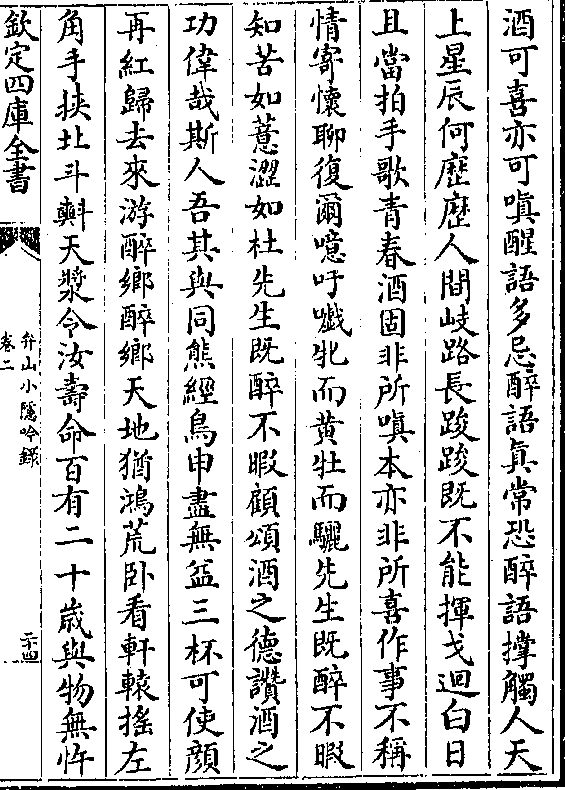 酒可喜亦可嗔醒語多忌醉語真常恐醉語撐觸人天
上星辰何歴歴人間岐路長踆踆既不能揮戈迴白日
且當拍手歌青春酒固非所嗔本亦非所喜作事不稱
情寄懐聊復爾噫吁嚱牝而黄牡而驪先生既醉不暇
知苦如薏澀如杜先生既醉不暇顧頌酒之德讚酒之
功偉哉斯人吾其與同熊經鳥申盡無益三杯可使顔
再紅歸去來游醉鄉醉鄉天地猶鴻荒卧看軒轅搖左
角手挾北斗㪺天漿令汝壽命百有二十歳與物無忤
欽定四庫全書
弁山小隱吟録
卷二
二十四